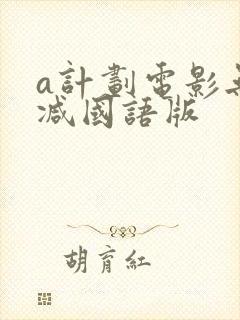 a計劃電影無
减國語版
胡育紅